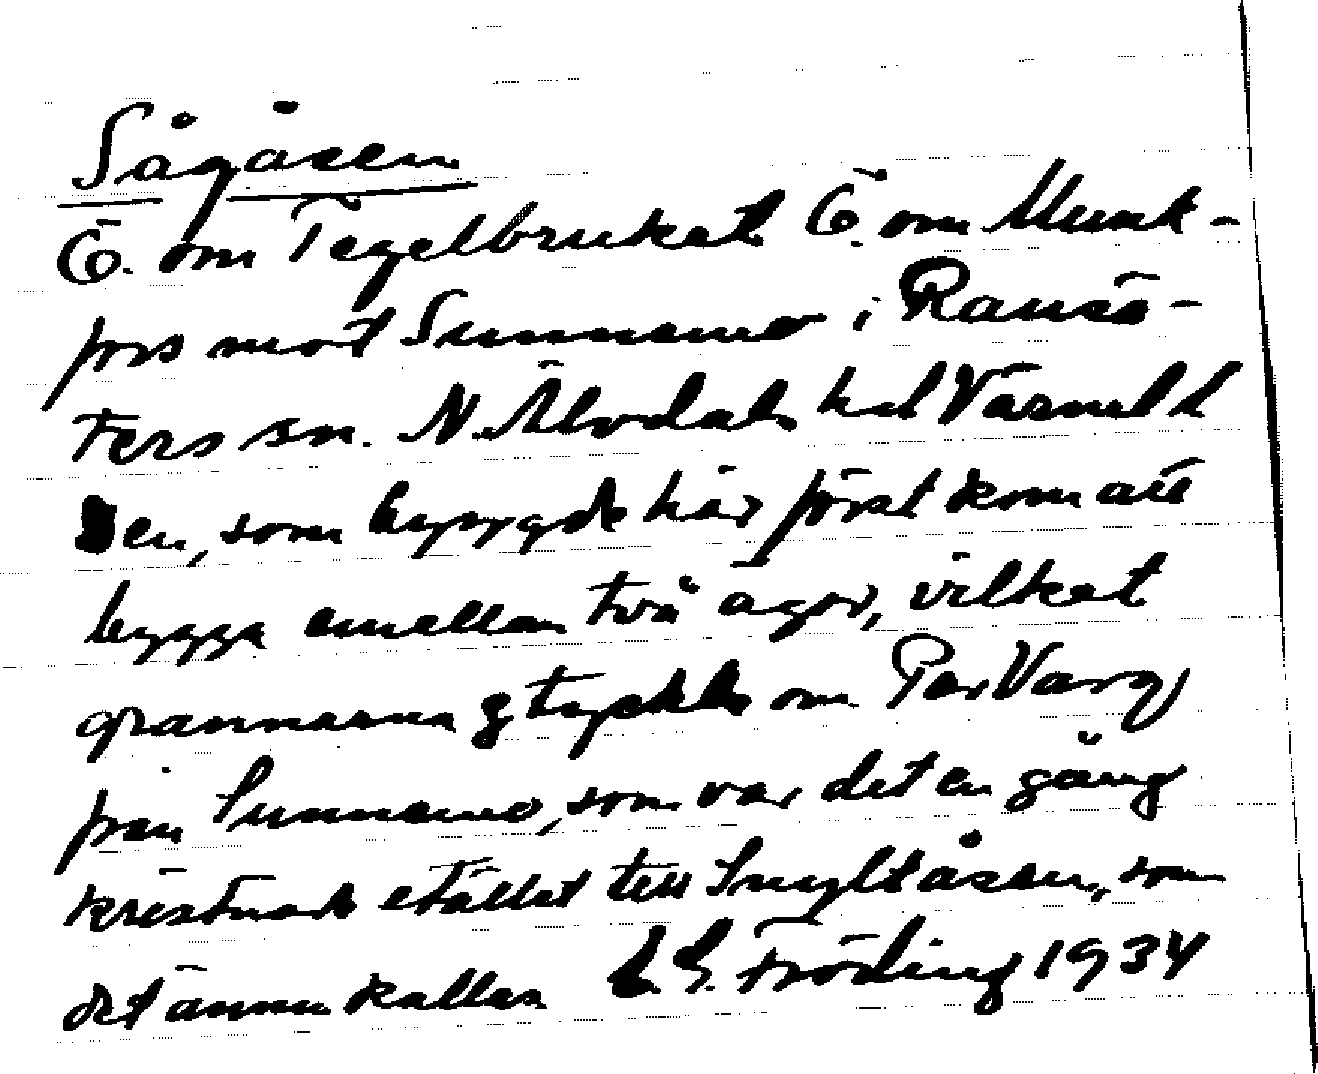 Sågåsen
Ö. om Tegelbruket Ö. om Munk-
fors mot Sunnemo i Ransä-
ters sn. N. Älvdals hd Värml
Den, som byggde här först kom att
bygga emellan två ägor, vilket
grannarna ej tyckte om Per Varg
från Sunnemo, som var det en gång
kristnade stället till Snyltåsen, som
det ännu kallas E. G. Fröding 1934